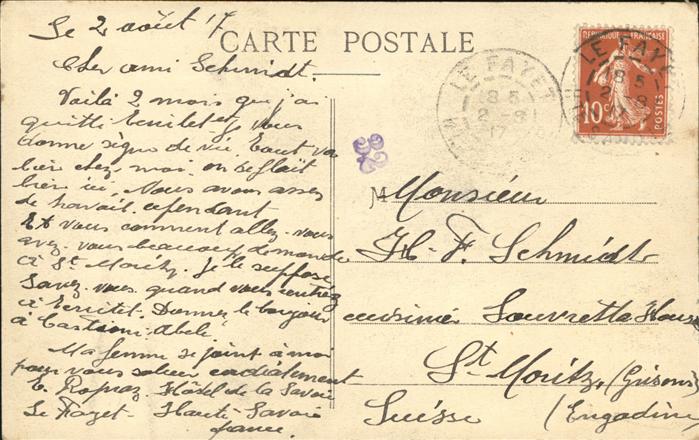 Le 2 août 17
CARTE POSTALE
Cher ami Schmidt.
Voilà 2 mois que j'ai
quitté Territet et vous
donne signe de vie. Tout va
bien chez moi. on se plaît
bien ici. Nous avons assez
de travail. cependant
Et vous comment allez-vous
avez-vous beaucoup de monde
à St. Moritz. Je le suppose
Savez-vous quand vous rentrez
à Territet. Donnez le bonjour
à
Ma femme se joint à moi
pour vous saluer cordialement
E. Hôtel de la Savoie
Le Fayet - Haute-Savoie
france.
LE FAYET
8 5
2 - 8
17
REPUBLIQUE FRANÇAISE
10c
POSTES
LE FAYET
8 5
2 - 8
M
Monsieur
H. F. Schmidt
cuisinier Souvretta House
St Moritz, (Grisons)
Suisse (Engadine)